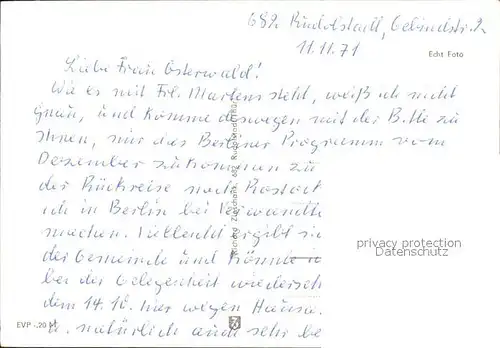 682 Rudolstadt, Gebindstr. 2
11.11.71
Echt Foto
Liebe Frau Osterwald!
Wie es mit Frl. Martens steht, weiß ich nicht
genau, und komme deswegen mit der Bitte zu
Ihnen, mir das Berliner Programm vom
Dezember zukommen zu
der Rückreise nach Rostock
ich in Berlin bei Verwandte
machen. Vielleicht ergibt si
der Gemeinde und könnte
bei der Gelegenheit wiederseh
dem 14.10. hier wegen
u. natürlich auch sehr be
EVP -.20 M
privacy protection
Datenschutz